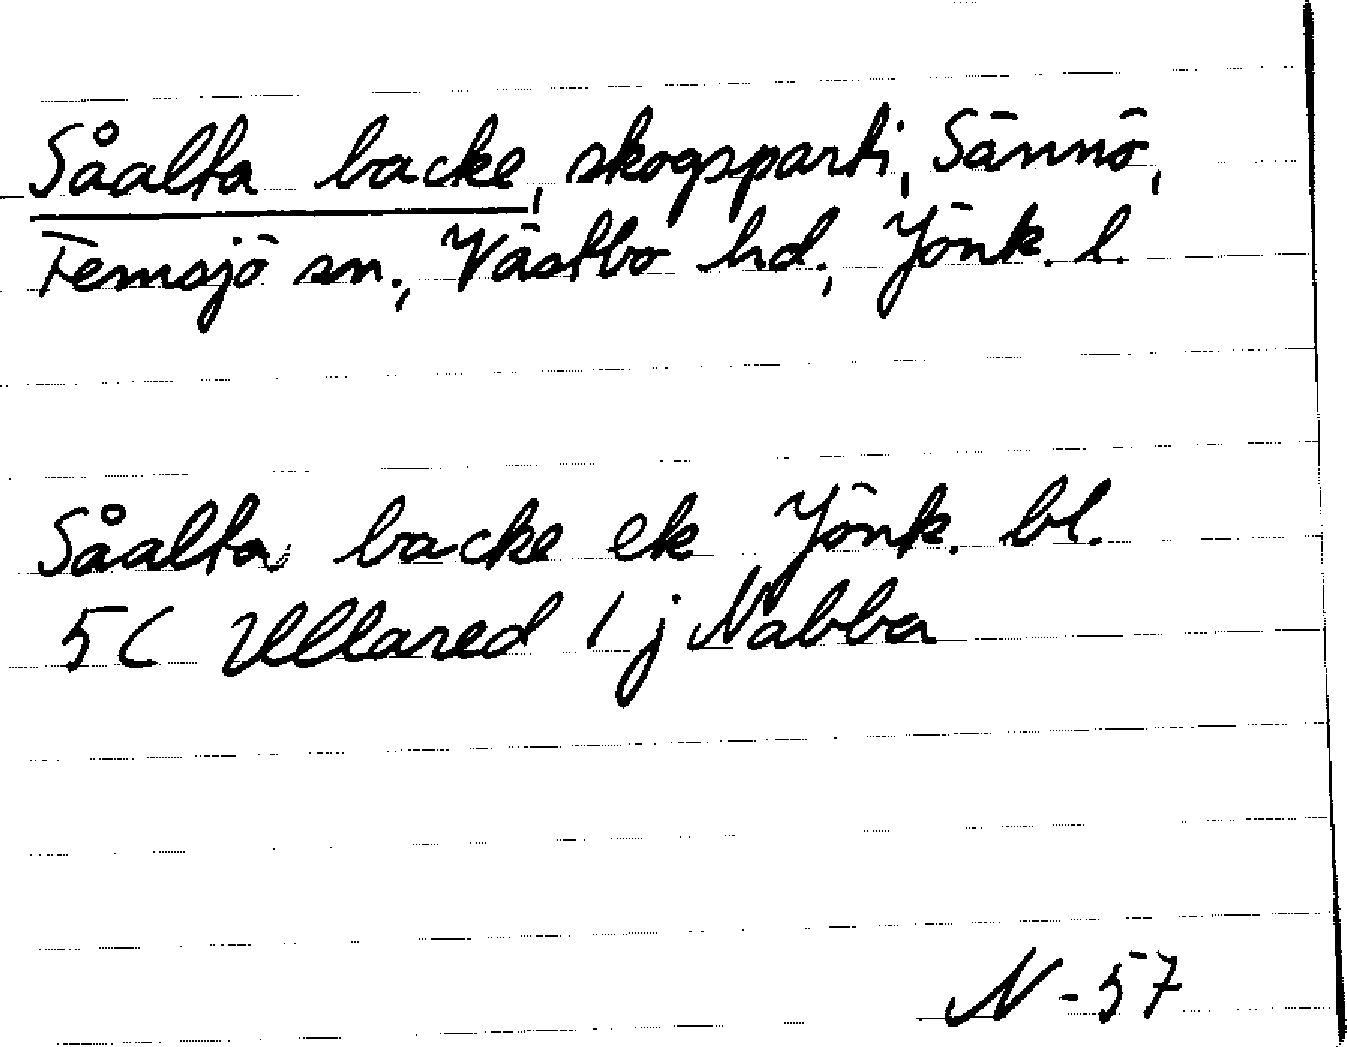 Såalta backe, skogsparti, Sännö,
Femsjö sn., Västbo hd., Jönk. l.
Såalta backe ek Jönk. bl.
5C Ullared 1 j Nabba
N-57